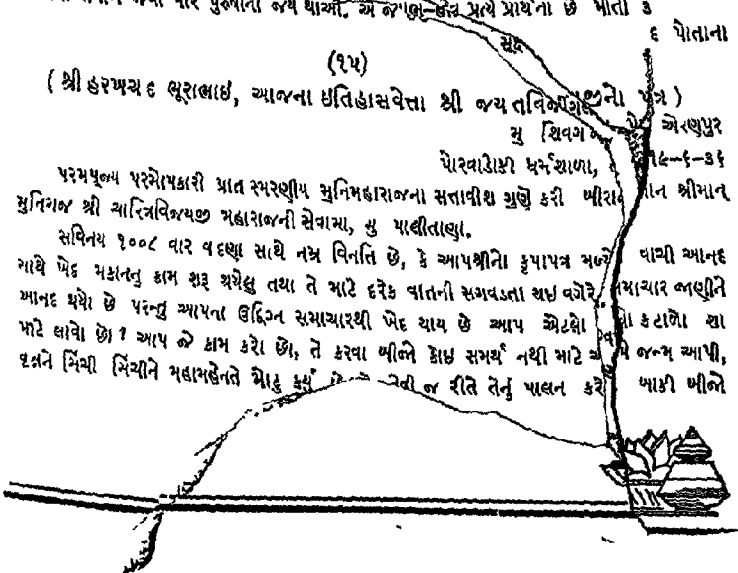 વીર પુરુષોનો જય થાઓ. એ જ પ્રત્યે પ્રાર્થના છે માતા ૩
સૂદ ૬ પોતાના
(૧૫)
( શ્રી હરખચદ ભૂરાભાઇ, આજના ઇતિહાસવેત્તા શ્રી જયતવિજયજીનો પત્ર )
મુ શિવગ એરણપુર
પોરવાડોકી ધર્મશાળા, ૧૯-૬-૩૬
પરમપૂજ્ય પરમોપકારી પ્રાત સ્મરણીય મુનિમહારાજના સત્તાવીશ ગુણે કરી બીરા માન શ્રીમાન્
મુનિરાજ શ્રી ચારિત્રવિજયજી મહારાજની સેવામા, મુ પાલીતાણા.
સવિનય ૧૦૦૮ વાર વદણા સાથે નમ્ર વિનતિ છે, કે આપશ્રીનો કૃપાપત્ર મળ્યો વાચી આનદ
સાથે ખેદ મકાનનુ કામ શરૂ થયેલુ તથા તે માટે દરેક વાતની સગવડતા થઇ વગેરે સમાચાર જાણીને
આનદ થયો છે પરન્તુ આપના ઉદ્વિગ્ન સમાચારથી ખેદ થાય છે આપ એટલો કટાળો શા
માટે લાવો છો? આપ જે કામ કરો છો, તે કરવા બીજો કોઇ સમર્થ નથી માટે જન્મ આપી,
વૃક્ષને સિંચી સિંચીને મહામહેનતે મોટુ કર્યું જ રીતે તેનું પાલન કરો બાકી બીજો